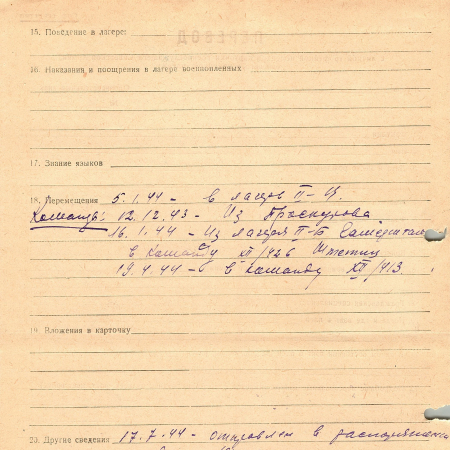 15. Поведение в лагере:
16. Наказания и поощрения в лагере военнопленных
17. Знание языков
18. Перемещения 5.1.44 - в лагерь II-
Команды: 12.12.43 - Из Проскурова
16.1.44 - Из лагеря II-Б
в команду XII/426 Штетин
19.4.44 - в команду XII/413
19. Вложения в карточку
20. Другие сведения 17.7.44 - отправлен в распоряжение